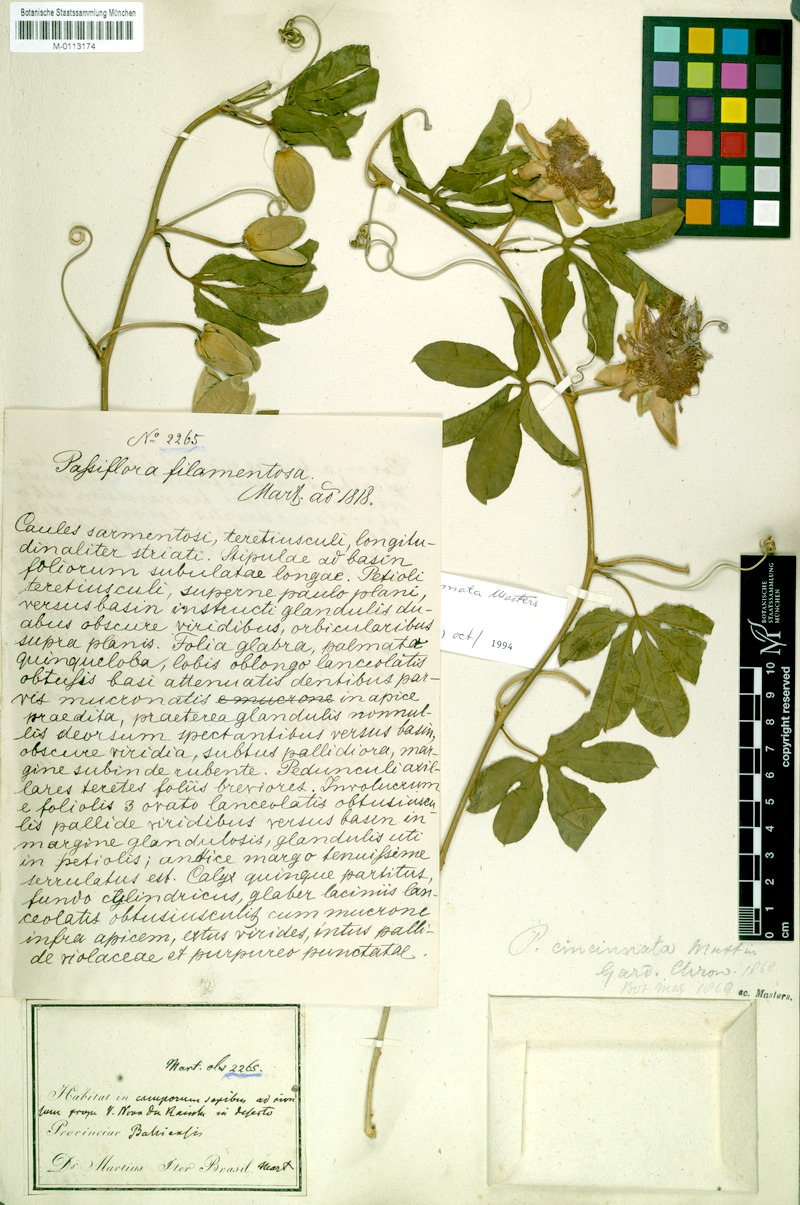 Botanische Staatssammlung München
M-0113174
No 2265
Passiflora filamentosa.
Mart. ad 1818.
Caules sarmentosi, teretiusculi, longitu-
dinaliter striati. Stipulae ad basin
foliorum subulatae longae. Petioli
teretiusculi, superne paulo plani,
versus basin instructi glandulis du-
abus obscure viridibus, orbicularibus
supra planis. Folia glabra, palmata
quinqueloba, lobis oblongo lanceolatis
obtusis basi attenuatis dentibus par-
vis mucronatis e mucrone in apice
praedita, praeterea glandulis nonnul-
lis deorsum spectantibus versus basin,
obscure viridia, subtus pallidiora, mar-
gine subinde rubente. Pedunculi axil-
lares teretes foliis breviores. Involucrum
e foliolis 3 ovato lanceolatis obtusiuscu-
lis pallide viridibus versus basen in
margine glandulosis, glandulis uti
in petiolis; antice margo tenuissime
serrulatus est. Calyx quinque partitus,
fundo cylindricus, glaber laciniis lan-
ceolatis obtusiusculis cum mucrone
infra apicem, extus virides, intus palli-
de violaceae et purpureo punctatae.
nnata Masters
) oct/ 1994
BOTANISCHE
STAATSSAMMLUNG
MÜNCHEN
copyright reserved
10
9
8
7
6
5
4
3
2
1
0
cm
P. cincinnata Mast
Gard. Chron. 186
Bot Mag 1869
sc. Masters.
Mart. obs 2265.
Habitat in camporum sepibus ad
in deserto
Provinciae Bahiensis
Dr. Martius Iter Brasil. Mart